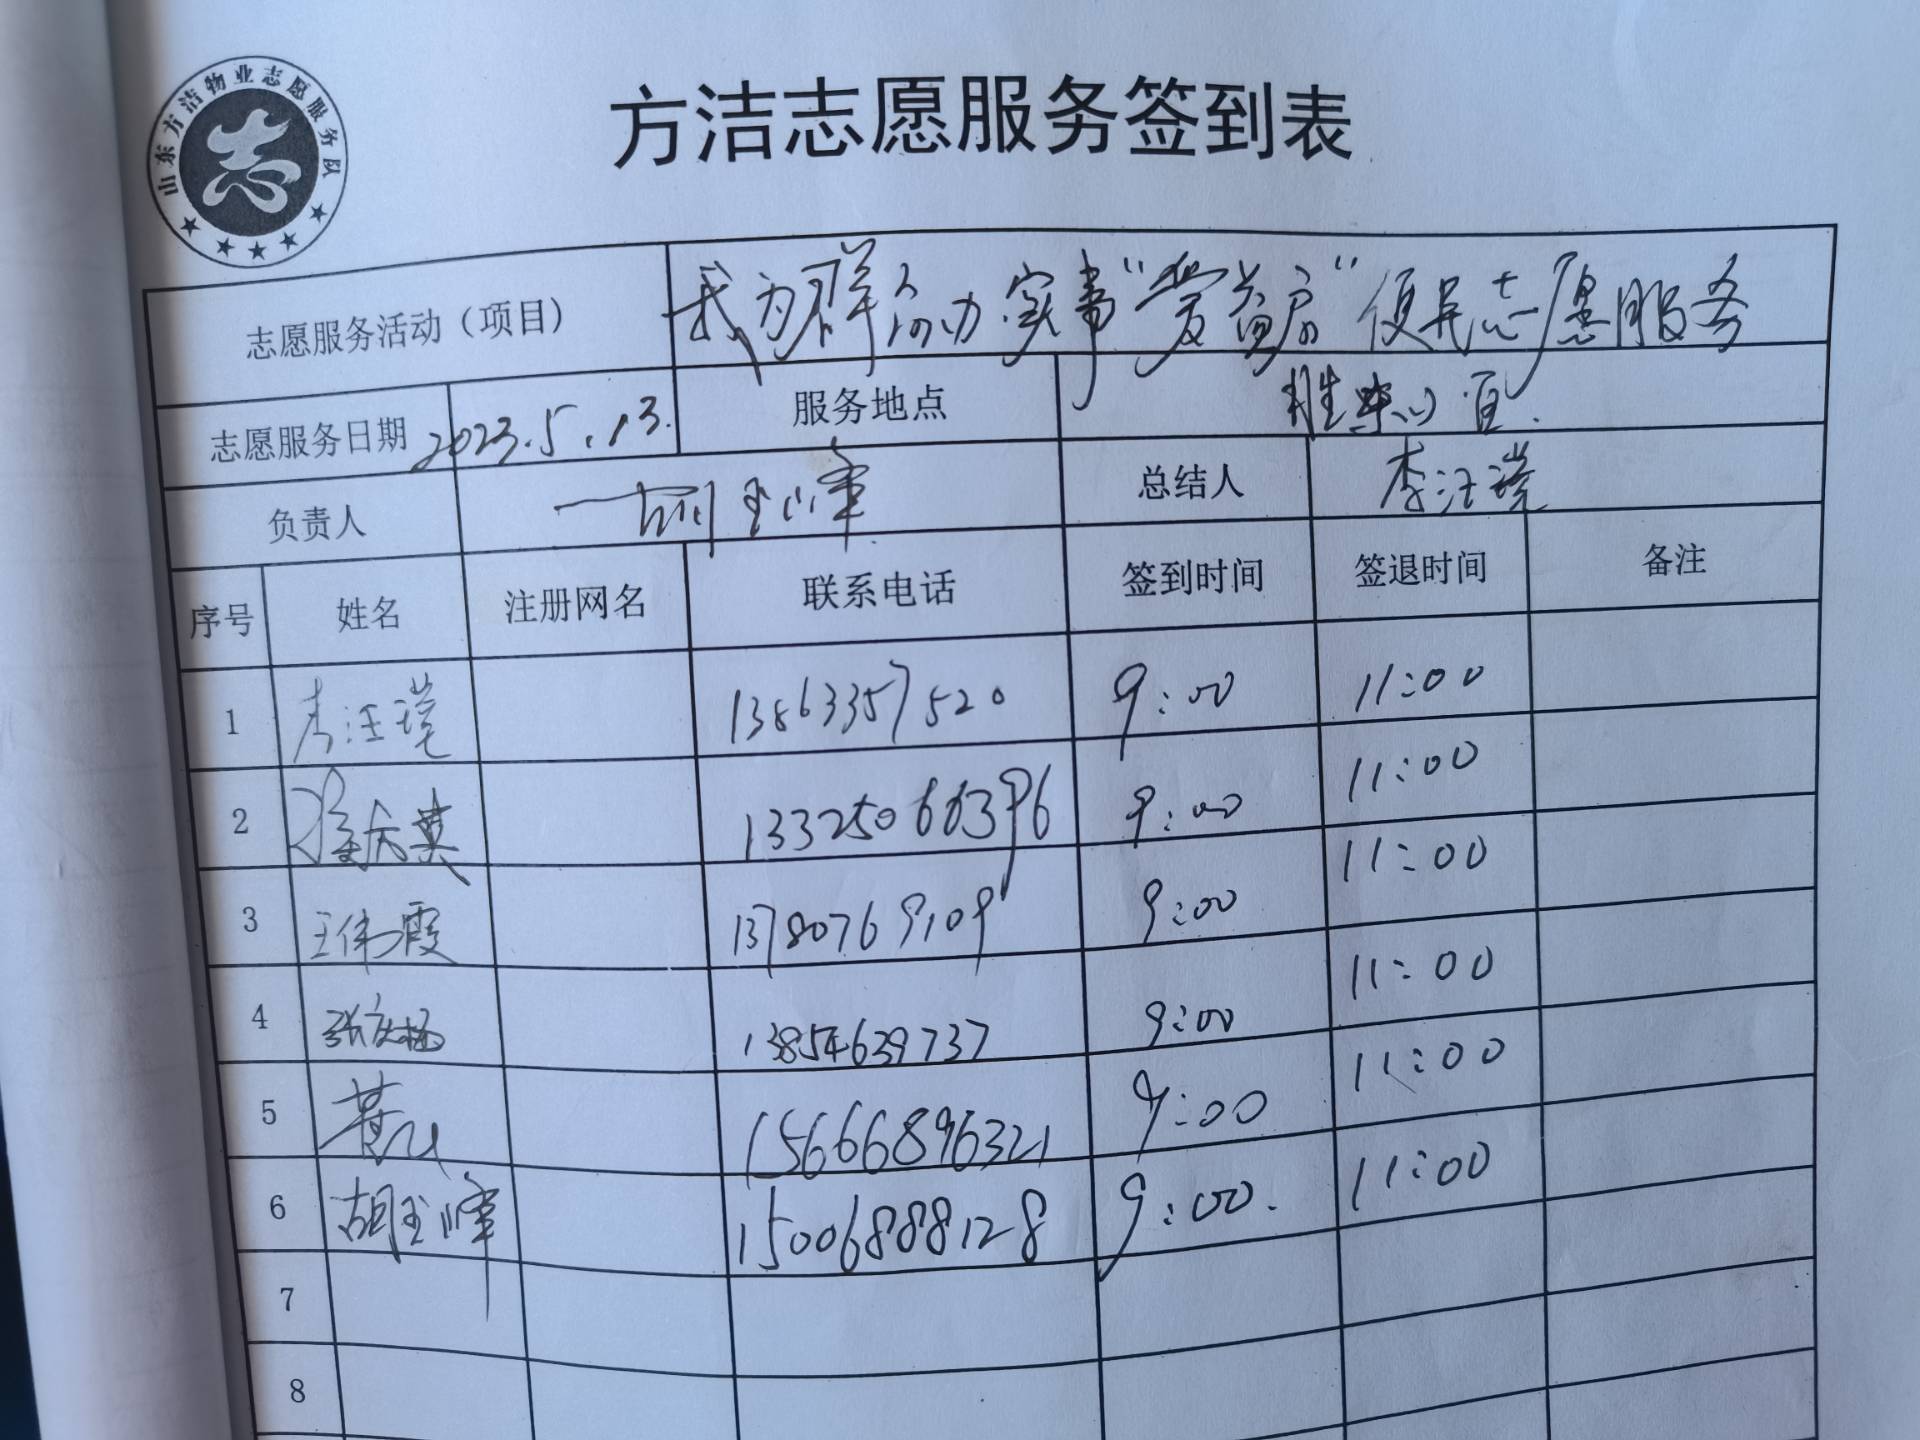 山东方洁物业志愿服务队
志
方洁志愿服务签到表
志愿服务活动（项目） 我为群众办实事“爱益启”便民志愿服务
志愿服务日期 2023.5.13. 服务地点
负责人 胡玉峰 总结人 李汪瑞
序号 姓名 注册网名 联系电话 签到时间 签退时间 备注
1 李汪瑞 13863357520 9:00 11:00
2 13325066396 9:00 11:00
3 王伟霞 13780769109 9:00 11:00
4 13854639737 9:00 11:00
5 15666896321 9:00 11:00
6 胡玉峰 15006888128 9:00. 11:00
7
8